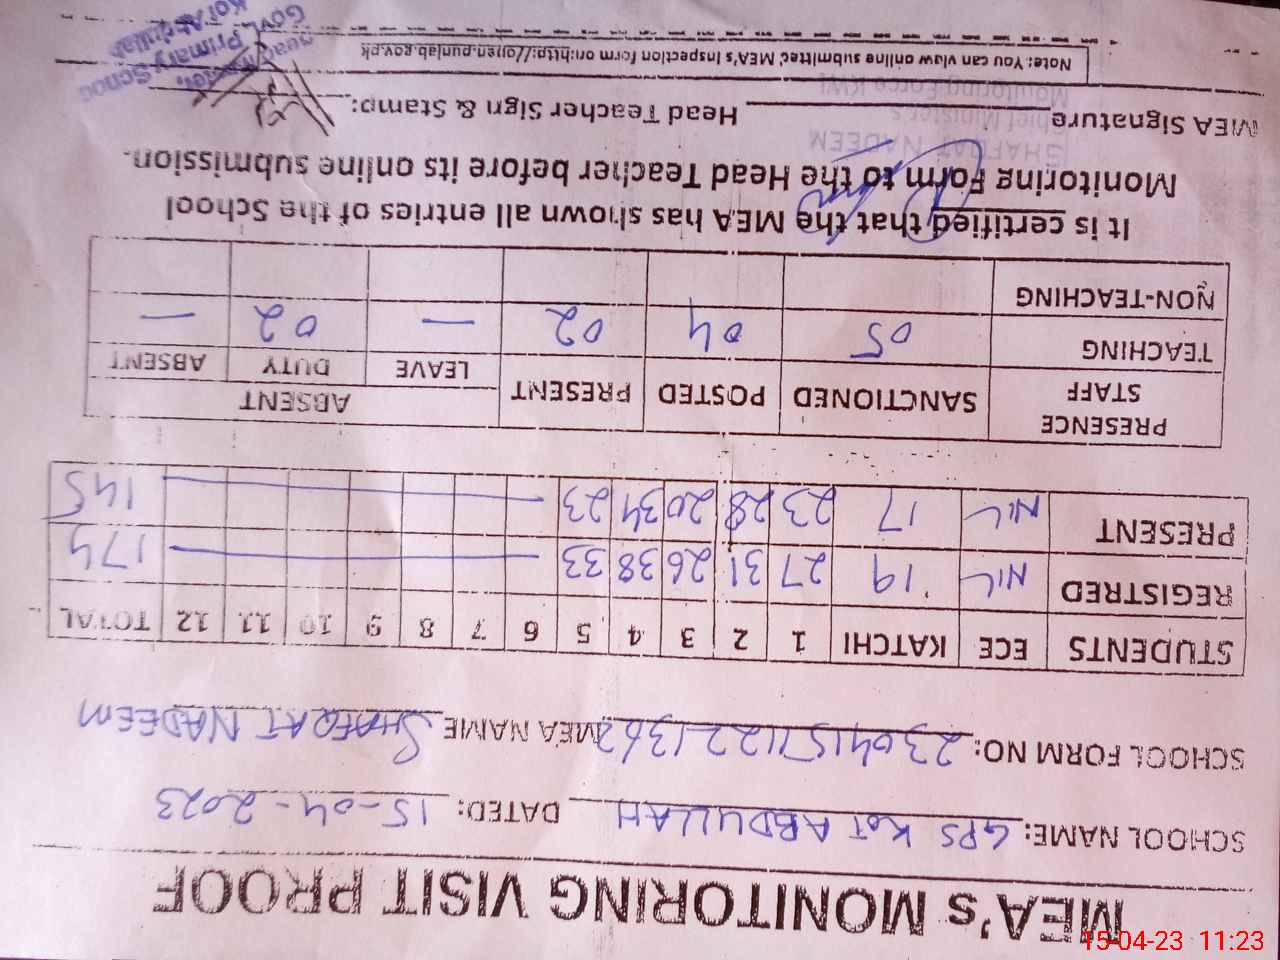 MEA's MONITORING VISIT PROOF
SCHOOL NAME: GPS KOT ABDULLAH DATED: 15-04-2023
SCHOOL FORM NO: 23041511221362 MEA NAME SHAFQAT NADEEM
STUDENTS ECE KATCHI 1 2 3 4 5 6 7 8 9 10 11 12 TOTAL
REGISTRED NIL 19 27 31 26 38 33 174
PRESENT NIL 17 23 28 20 34 23 145
PRESENCE STAFF SANCTIONED POSTED PRESENT ABSENT
LEAVE DUTY ABSENT
TEACHING 05 04 02 — 02 —
NON-TEACHING
It is certified that the MEA has shown all entries of the School
Monitoring Form to the Head Teacher before its online submission.
SHAFQAT NADEEM
Chief Minister's
Monitoring Force
MEA Signature Head Teacher Sign & Stamp:
Note: You can view online submitted MEA's inspection form on:http://open.punjab.gov.pk
Primary School
Kot Abdullah
15-04-23 11:23